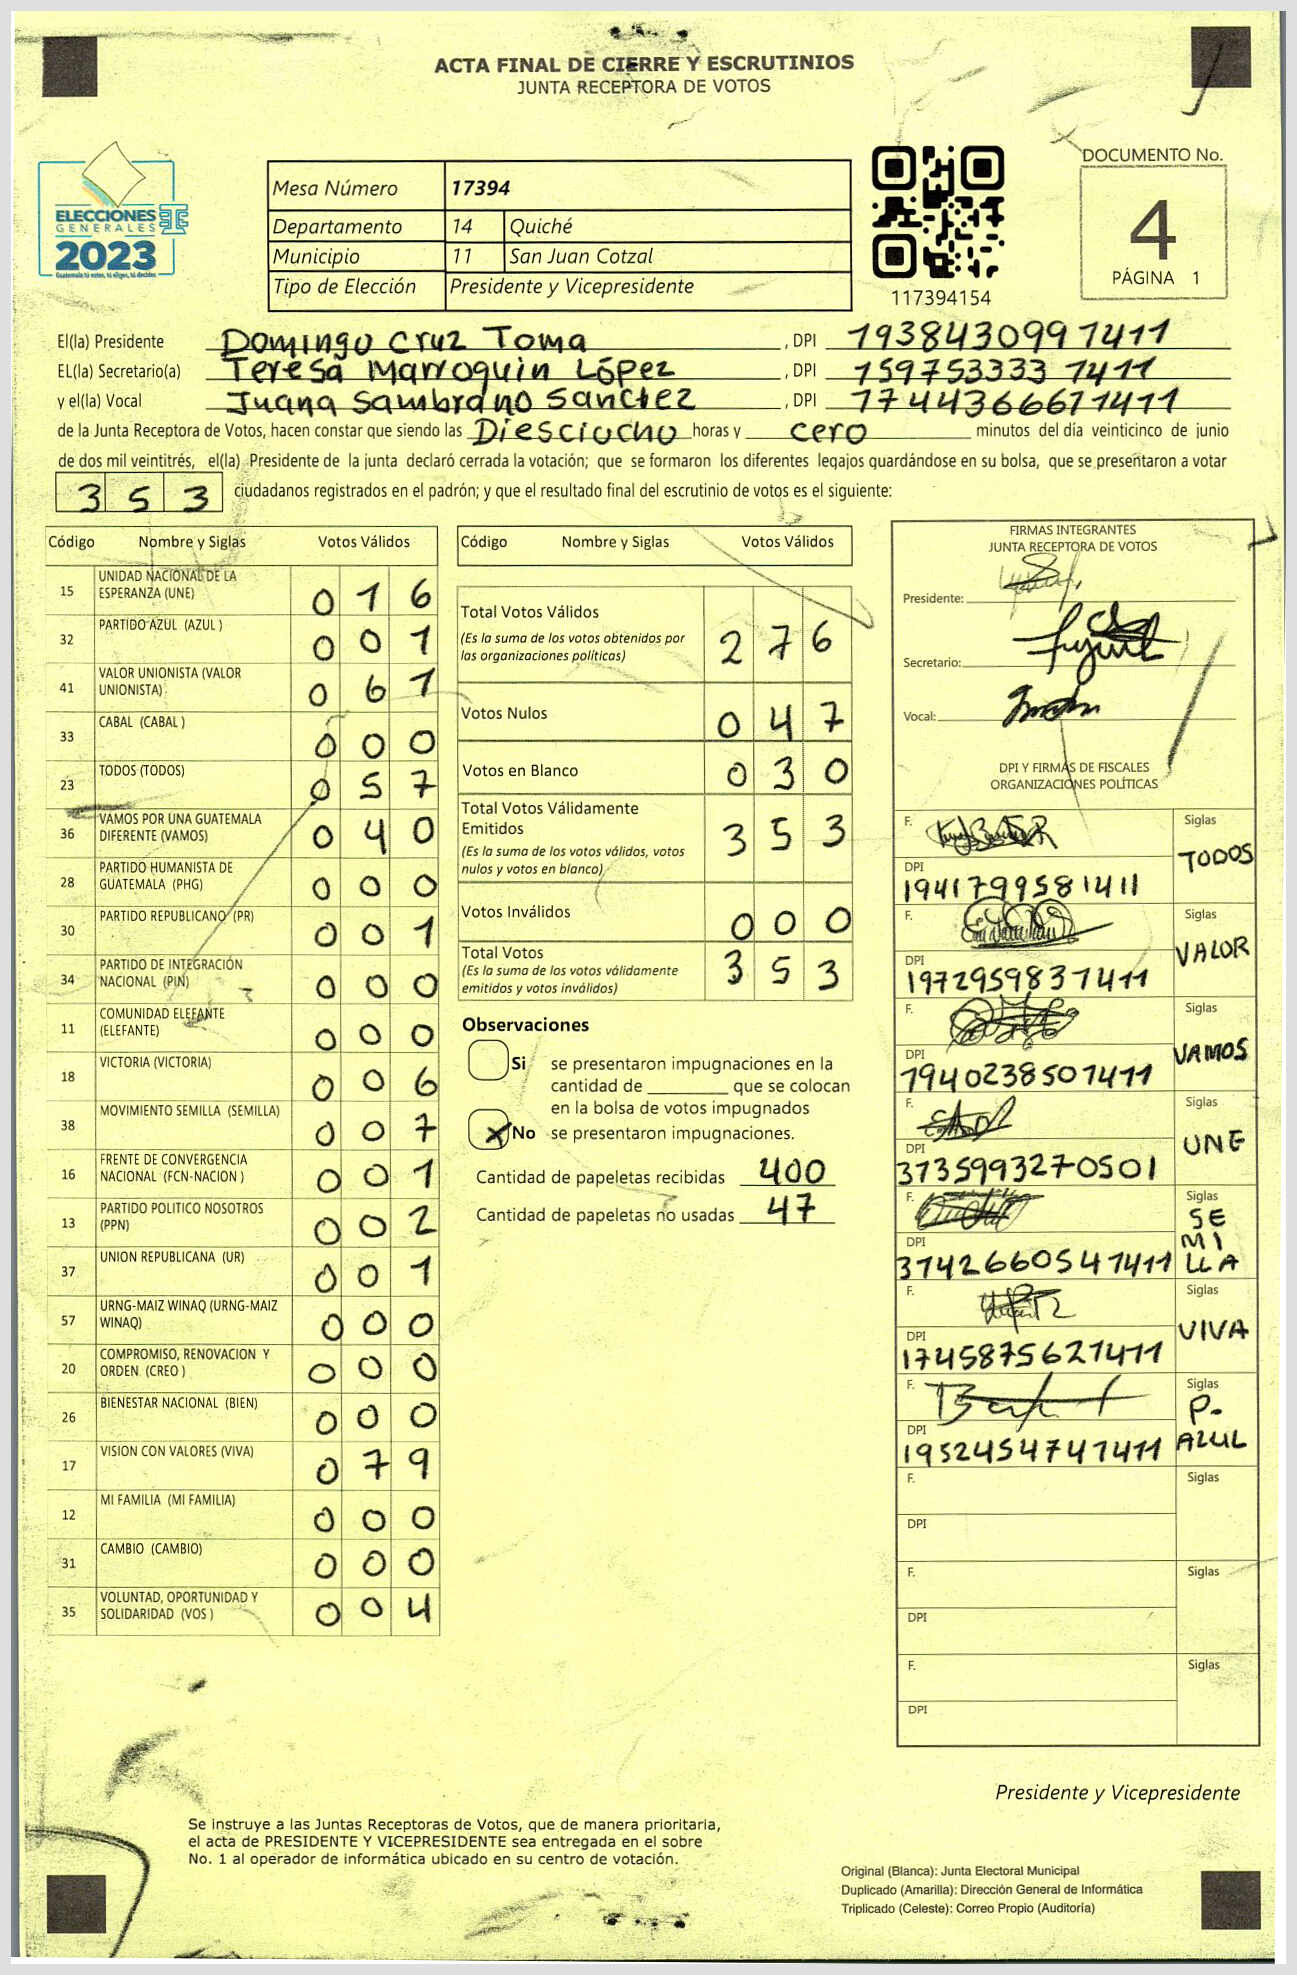 ACTA FINAL DE CIERRE Y ESCRUTINIOS
JUNTA RECEPTORA DE VOTOS
ELECCIONES
GENERALES
2023
Guatemala tú votas, tú eliges, tú decides
Mesa Número 17394
Departamento 14 Quiché
Municipio 11 San Juan Cotzal
Tipo de Elección Presidente y Vicepresidente
117394154
DOCUMENTO No.
4
PÁGINA 1
El(la) Presidente Domingo Cruz Toma , DPI 1938430997411
EL(la) Secretario(a) Teresa Marroquin López , DPI 1597533337411
y el(la) Vocal Juana Sambrano Sanchez , DPI 1774436661411
de la Junta Receptora de Votos, hacen constar que siendo las Diesciocho horas y cero minutos del día veinticinco de junio
de dos mil veintitrés, el(la) Presidente de la junta declaró cerrada la votación; que se formaron los diferentes legajos guardándose en su bolsa, que se presentaron a votar
353 ciudadanos registrados en el padrón; y que el resultado final del escrutinio de votos es el siguiente:
Código Nombre y Siglas Votos Válidos
15 UNIDAD NACIONAL DE LA ESPERANZA (UNE) 016
32 PARTIDO AZUL (AZUL ) 001
41 VALOR UNIONISTA (VALOR UNIONISTA) 061
33 CABAL (CABAL ) 000
23 TODOS (TODOS) 057
36 VAMOS POR UNA GUATEMALA DIFERENTE (VAMOS) 040
28 PARTIDO HUMANISTA DE GUATEMALA (PHG) 000
30 PARTIDO REPUBLICANO (PR) 001
34 PARTIDO DE INTEGRACIÓN NACIONAL (PIN) 000
11 COMUNIDAD ELEFANTE (ELEFANTE) 000
18 VICTORIA (VICTORIA) 006
38 MOVIMIENTO SEMILLA (SEMILLA) 007
16 FRENTE DE CONVERGENCIA NACIONAL (FCN-NACION ) 001
13 PARTIDO POLITICO NOSOTROS (PPN) 002
37 UNION REPUBLICANA (UR) 001
57 URNG-MAIZ WINAQ (URNG-MAIZ WINAQ) 000
20 COMPROMISO, RENOVACION Y ORDEN (CREO ) 000
26 BIENESTAR NACIONAL (BIEN) 000
17 VISION CON VALORES (VIVA) 079
12 MI FAMILIA (MI FAMILIA) 000
31 CAMBIO (CAMBIO) 000
35 VOLUNTAD, OPORTUNIDAD Y SOLIDARIDAD (VOS ) 004
Código Nombre y Siglas Votos Válidos
Total Votos Válidos 276
(Es la suma de los votos obtenidos por
las organizaciones políticas)
Votos Nulos 047
Votos en Blanco 030
Total Votos Válidamente
Emitidos 353
(Es la suma de los votos válidos, votos
nulos y votos en blanco)
Votos Inválidos 000
Total Votos 353
(Es la suma de los votos válidamente
emitidos y votos inválidos)
Observaciones
Si se presentaron impugnaciones en la
cantidad de ________ que se colocan
en la bolsa de votos impugnados
X No se presentaron impugnaciones.
Cantidad de papeletas recibidas 400
Cantidad de papeletas no usadas 47
FIRMAS INTEGRANTES
JUNTA RECEPTORA DE VOTOS
Presidente:
Secretario:
Vocal:
DPI Y FIRMAS DE FISCALES
ORGANIZACIONES POLÍTICAS
F. Siglas TODOS
DPI 1941799581411
F. Siglas VALOR
DPI 1972959837411
F. Siglas VAMOS
DPI 1940238501411
F. Siglas UNE
DPI 3735993270501
F. Siglas SEMILLA
DPI 3742660541411
F. Siglas VIVA
DPI 1745875621411
F. Siglas P- AZUL
DPI 1952454741411
F. Siglas
DPI
F. Siglas
DPI
F. Siglas
DPI
Presidente y Vicepresidente
Se instruye a las Juntas Receptoras de Votos, que de manera prioritaria,
el acta de PRESIDENTE Y VICEPRESIDENTE sea entregada en el sobre
No. 1 al operador de informática ubicado en su centro de votación.
Original (Blanca): Junta Electoral Municipal
Duplicado (Amarilla): Dirección General de Informática
Triplicado (Celeste): Correo Propio (Auditoría)